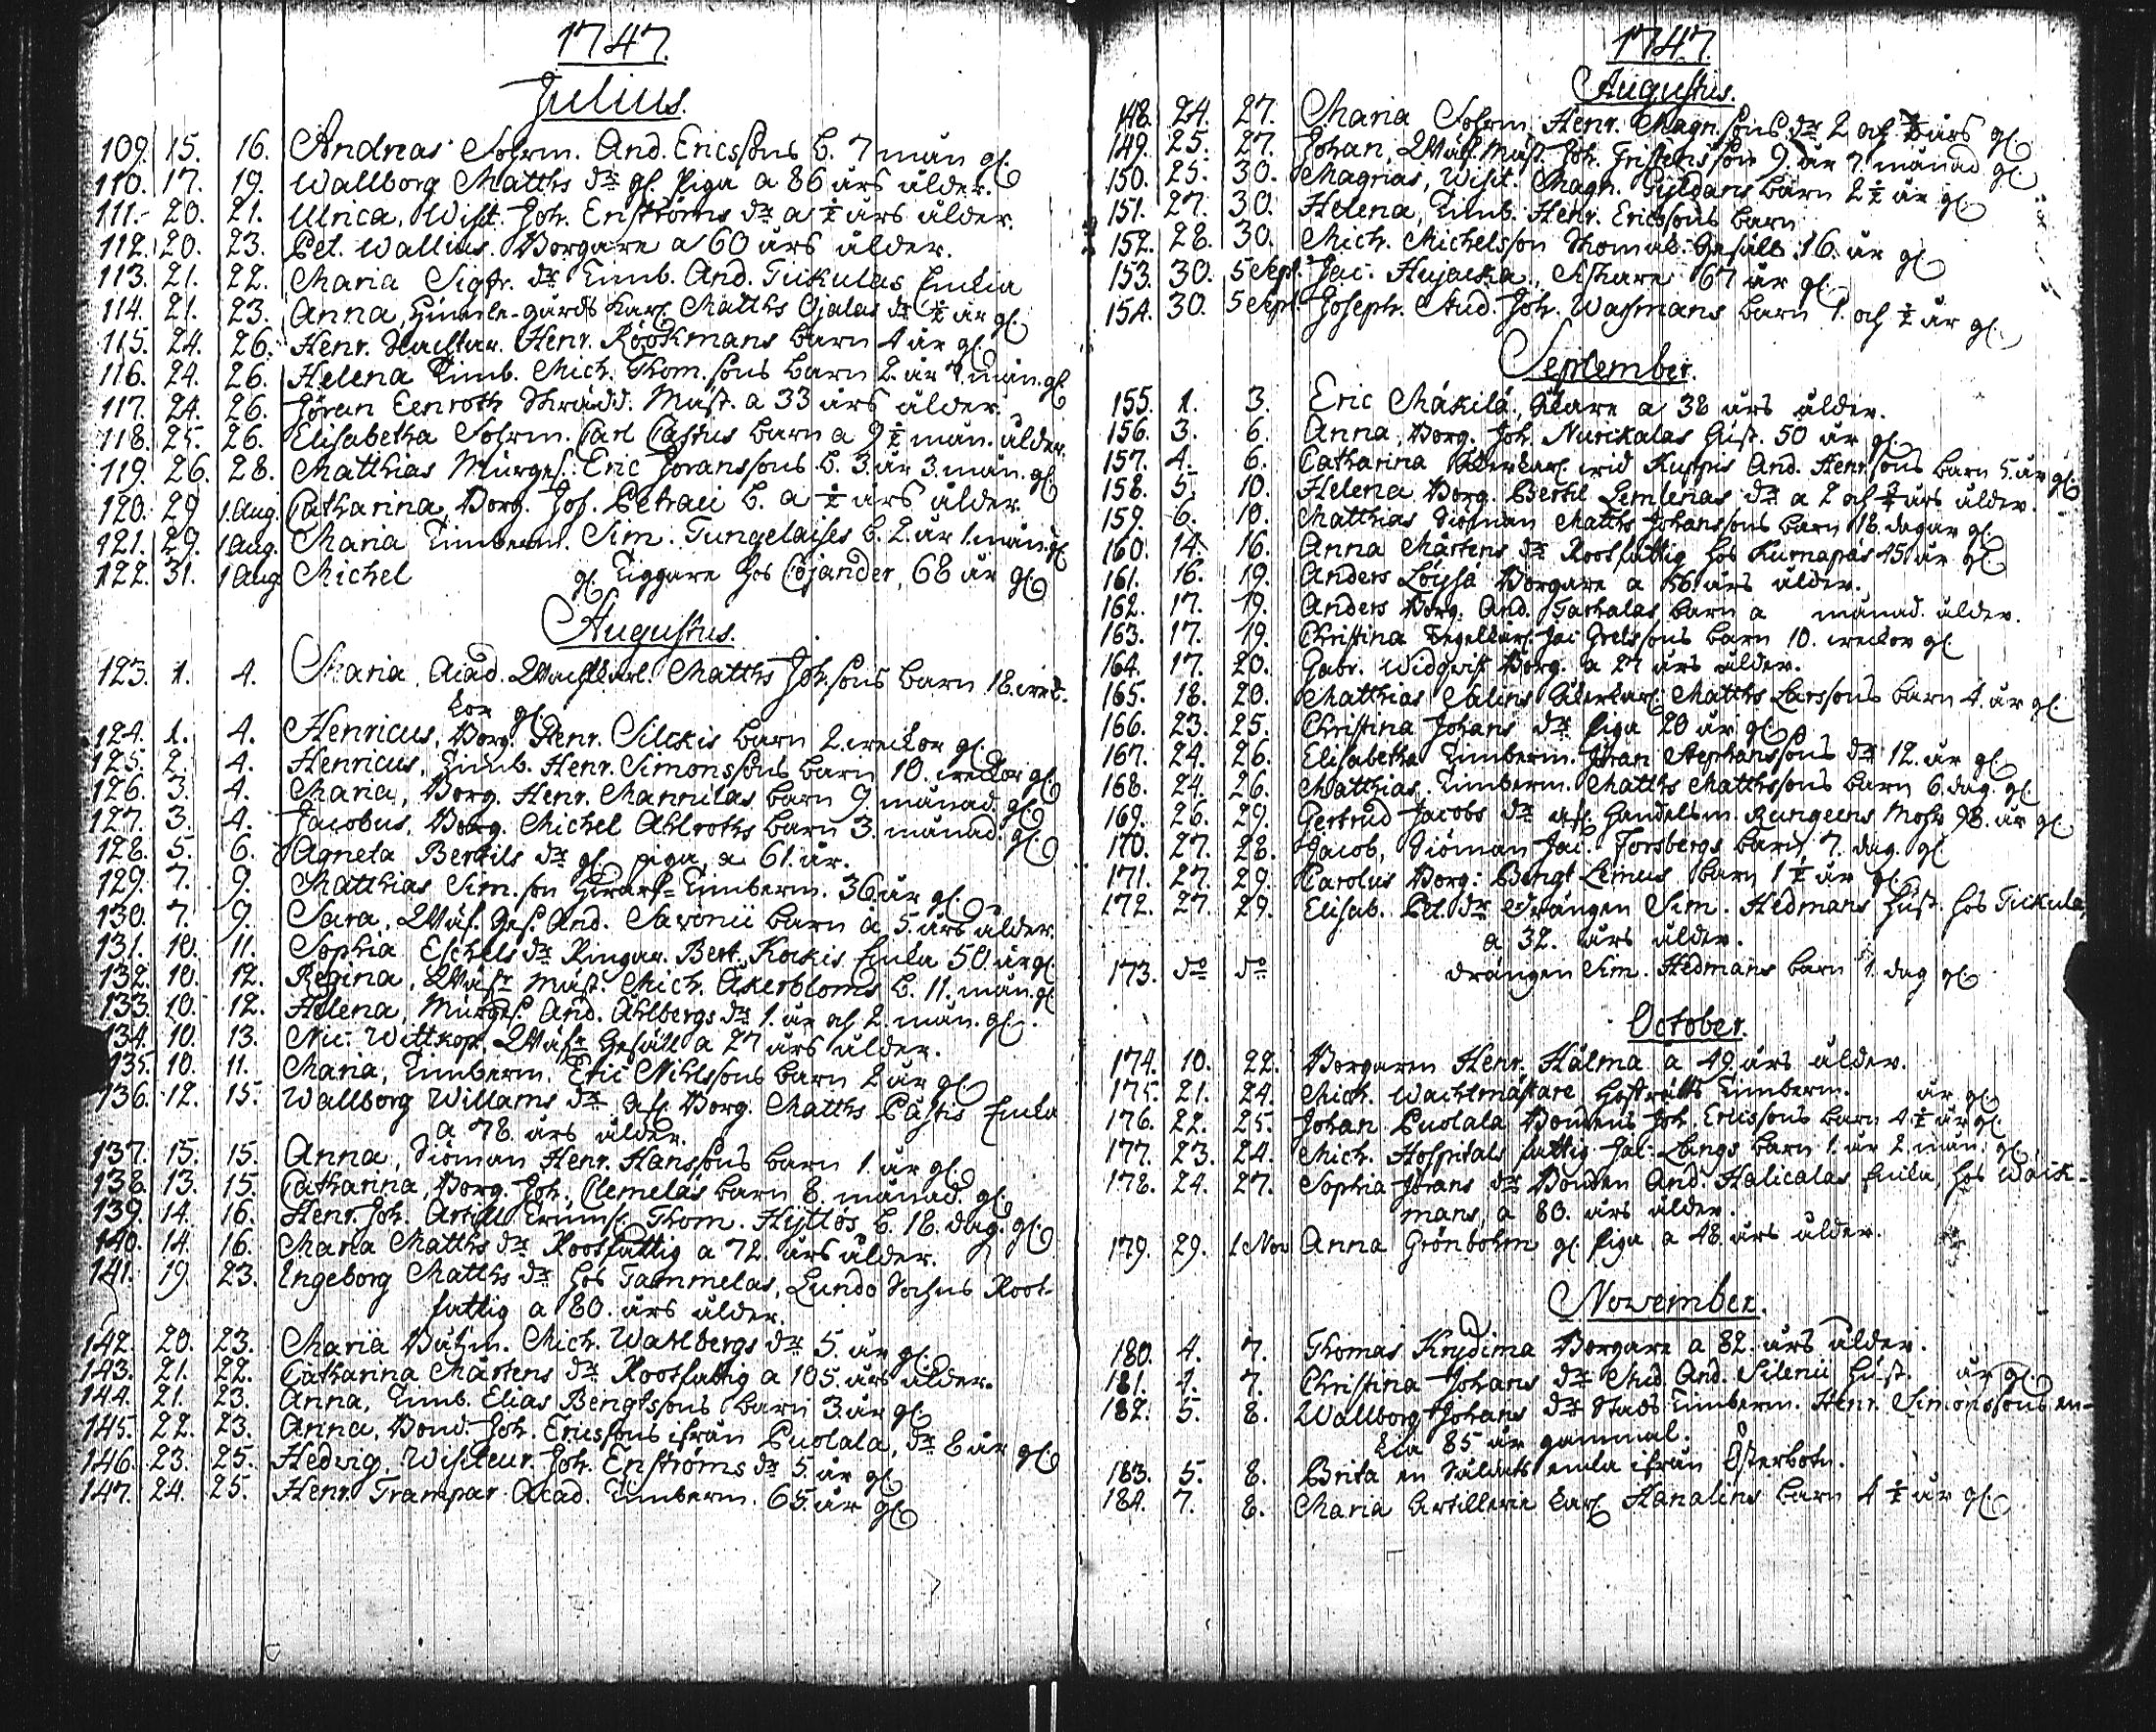 1747.
Julius.
109. 15. 16. Andreas Sohrm. And. Ericssons b. 7 mån gl.
110. 17. 19. Wallborg Matths dr gl. piga a 86 års ålder.
111. 20. 21. Ulrica, Visit. Joh. Enströms dr a ½ års ålder.
112. 20. 23. Pet. Wallius Borgare a 60 års ålder.
113. 21. 22. Maria Sigfr. dr Timb. And. Tuckulas Enkia
114. 21. 23. Anna, Humle-gårds Karl Matths Ojalas dr ½ år gl.
115. 24. 26. Henr. Henr. Röökmans barn 4 år gl.
116. 24. 26. Helena Timb. Mich. Thom.sons barn 2. år 7. mån. gl
117. 24. 26. Jöran Eenroth Skrädd. Mäst. a 33 års ålder.
118. 25. 26. Elisabetha Sohrm. Carl barn a 9 ½ mån. ålder.
119. 26. 28. Matthias Murges. Eric Joranssons b. 3. år 3. mån. gl.
120. 29 1. Aug. Catharina, Borg. Joh. Petraei b. a ½ års ålder.
121. 29. 1 Aug. Maria Timberm. Sim. Tungelaises b. 2. år 1. mån. gl
122. 31. 1 Aug Michel gl. Tiggare hos Cojander, 68 år gl
Augustus.
123. 1. 4. Maria, Acad. Wachtkarl. Matths Joh.sons barn 18. wec-
kor gl.
124. 1. 4. Henricus, Borg. Henr. Silckis barn 2. weckor gl.
125. 2. 4. Henricus, Timb. Henr. Simonssons barn 10. weckor gl.
126. 3. 4. Maria, Borg. Henr. Mannilas barn 9. månad. gl
127. 3. 4. Jacobus, Borg. Michel Ahlroths barn 3. månad. gl
128. 5. 6. Agneta Bertils dr gl. piga, a 61. år.
129. 7. 9. Matthias Sim.son Timberm. 36. år gl.
130. 7. 9. Sara, Wäf. Ges. And. Saxonii barn a 5. års ålder.
131. 10. 11. Sophia Eschels dr Ringar. Bert. Kockis Enka 50. år gl.
132. 10. 12. Regina, Wäf. mäst. Mich. Åkerbloms b. 11. mån. gl
133. 10. 12. Helena, Murges. And. Ahlbergs dr 1. år och 2. mån. gl.
134. 10. 13. Nic. Wittkop. Wäf. Gesäll a 27 års ålder.
135. 10. 11. Maria, Timberm. Eric Nihlssons barn 2 år gl
136. 12. 15. Wallborg Willams dr Afl. Borg. Matths Påstis Enka
a 78. års ålder.
137. 15. 15. Anna, Siöman Henr. Hanssons barn 1. år gl.
138. 13. 15. Catharina, Borg. Joh. Clemelas barn 8. månad. gl.
139. 14. 16. Henr. Joh. Artill. Trums. Thom. Hyttös b. 18. dag. gl.
140. 14. 16. Maria Matths dr Rootfattig a 72. års ålder.
141. 19. 23. Ingeborg Matths dr hos Tammelas, Lundo Sochns Root-
fattig a 80. års ålder.
142. 20. 23. Maria Båtsm. Mich. Wahlbergs dr 5. år gl.
143. 21. 22. Catharina Mårtens dr Rootfattig a 105. års ålder.
144. 21. 23. Anna, Timb. Elias Bengtssons barn 3. år gl.
145. 22. 23. Anna, Bond. Joh. Ericssons ifrån Puolala, dr 8 år gl
146. 23. 25. Hedvig Visiteur. Joh. Enströms dr 5. år gl
147. 24. 25. Henr. Trampar Acad. Timberm. 65. år gl
1747.
Augustus.
148. 24. 27. Maria Sohrm. Henr. Magn.sons dr 2 och ½ års gl
149. 25. 27. Johan, Wäf. Mäst. Joh. 9. år 7. månad gl
150. 25. 30. Magnias, Visit. Magn. Gyldans barn 2 ½ år gl
151. 27. 30. Helena, Timb. Henr. Ericssons barn
152. 28. 30. Mich. Michelsson Skomak. Gesäll. 16. år gl
153. 30. 5 Sept. Jac. Hujacka, Fiskare 67 år gl.
154. 30. 5 Sept. Joseph. Stud. Joh. Wassmans barn 1. och ½ år gl.
September.
155. 1. 3. Eric Mäkilä, Åkare a 38 års ålder.
156. 3. 6 Anna, Borg. Joh. Nurickalas Hust. 50 år gl.
157. 4. 6. Catharina wid Kuppis And. Henr.sons barn 5. år gl
158. 5. 10. Helena Borg. Bertil Lemlenas dr a 2 och ¾ års ålder.
159. 6. 10. Matthias Siöman Matths Johanssons barn 18. dagar gl.
160. 14. 16. Anna Mårtens dr Rootfattig hos Kurnapäs 45. år gl
161. 16. 19. Anders Löysä Borgare a 56. års ålder.
162. 17. 19. Anders Borg. And. Tarkalas barn a månad. ålder.
163. 17. 19. Christina Tegelkarl. Jac. Grelssons barn 10. weckor gl
164. 17. 20. Gabr. Widqvist Borg. a 27 års ålder.
165. 18. 20. Matthias Salins Åkerkarl Matths Larssons barn 4. år gl
166. 23. 25. Christina Johans dr piga 20 år gl
167. 24. 26. Elisabetha Timberm. Jöran Stephanssons dr 12. år gl
168. 24. 26. Matthias. Timberm. Matths Matthssons barn 6. dag. gl.
169. 26. 29. Gertrud Jacobs dr afl. Handelsm. Rungeens Mohr 98. år gl
170. 27. 28. Jacob, Siöman Jac. Forsbergs barn, 7. dag. gl
171. 27. 29. Carolus Borg. Bengt Lemus barn 1 ½ år gl.
172. 27. 29. Elisab. Pet. dr drängen Sim. Hedmans Hust. hos Tuckula,
a 32. års ålder.
173. do do drängen Sim. Hedmans barn 1. dag gl
October.
174. 10. 22. Borgaren Henr. Hälma a 49. års ålder.
175. 21. 24. Mich. Wachtmästare Hofrätts Timberm. år gl
176. 22. 25. Johan Puolala Bondens Joh. Ericssons barn 4 ½ år gl.
177. 23. 24. Mich. Hospitals fattig Jac. Längs barn 1. år 2. mån. gl
178. 24. 27. Sophia Jörans dr Bonden And. Halicalas Enka, hos Wäck-
mans, a 80. års ålder.
179. 29. 1 Nov Anna Grönbohm gl. piga a 48. års ålder.
November.
180. 4. 7. Thomas Krydima Borgare a 82. års ålder.
181. 4. 7. Christina Johans dr Stud. And. Silenii Hust. år gl.
182. 5. 8. Wallborg Johans dr Stads Timberm. Henr. Simonssons en-
kia 85 år gammal.
183. 5. 8. Brita en Såldats enka ifrån Österbotn.
184. 7. 8. Maria Artillerie karl Hanalins barn 4 ½ år gl.